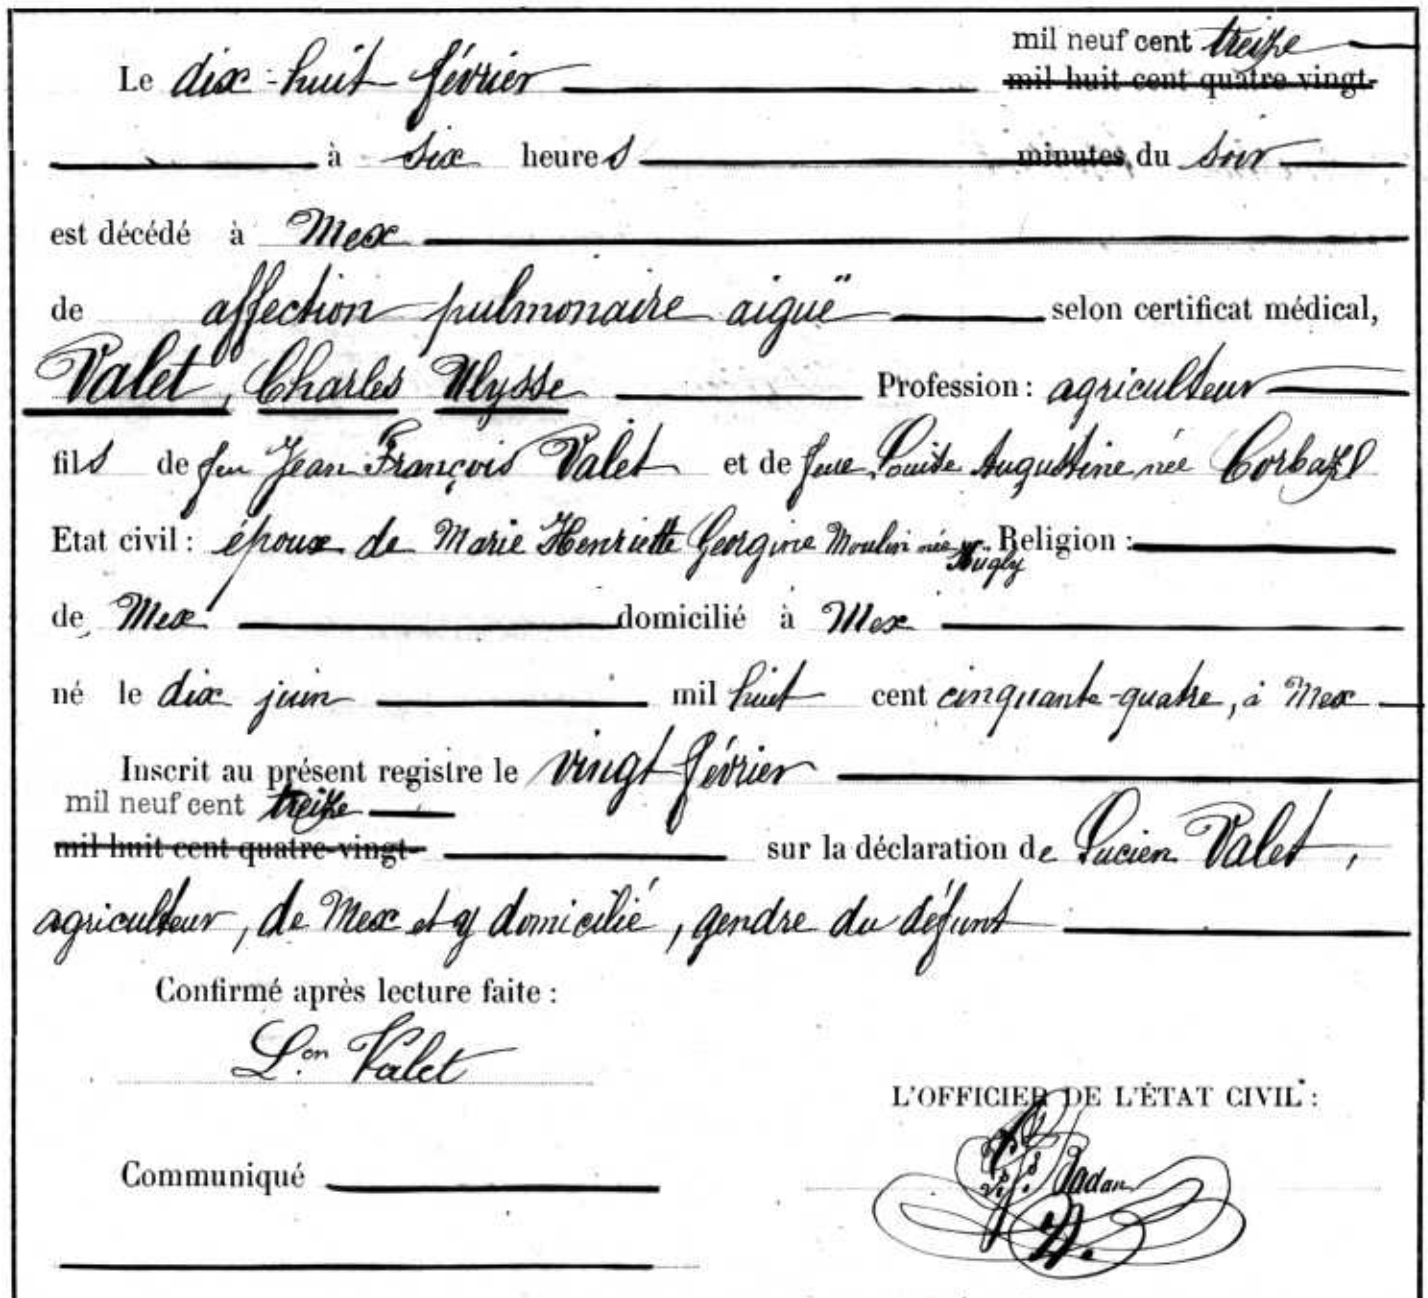 mil neuf cent treize
Le dix-huit février mil huit cent quatre-vingt-
à six heures minutes du soir
est décédé à Mex
de affection pulmonaire aiguë selon certificat médical,
Valet, Charles Ulysse Profession : agriculteur
fils de feu Jean François Valet et de feue Louise Augustine née Corbaz
Etat civil : époux de Marie Henriette Georgine Moulin née Religion :
de Mex domicilié à Mex
né le dix juin mil huit cent cinquante-quatre, à Mex
Inscrit au présent registre le vingt février
mil neuf cent treize
mil huit cent quatre-vingt- sur la déclaration de Lucien Valet,
agriculteur, de Mex et y domicilié, gendre du défunt
Confirmé après lecture faite :
L.on Valet
L'OFFICIER DE L'ÉTAT CIVIL :
Communiqué